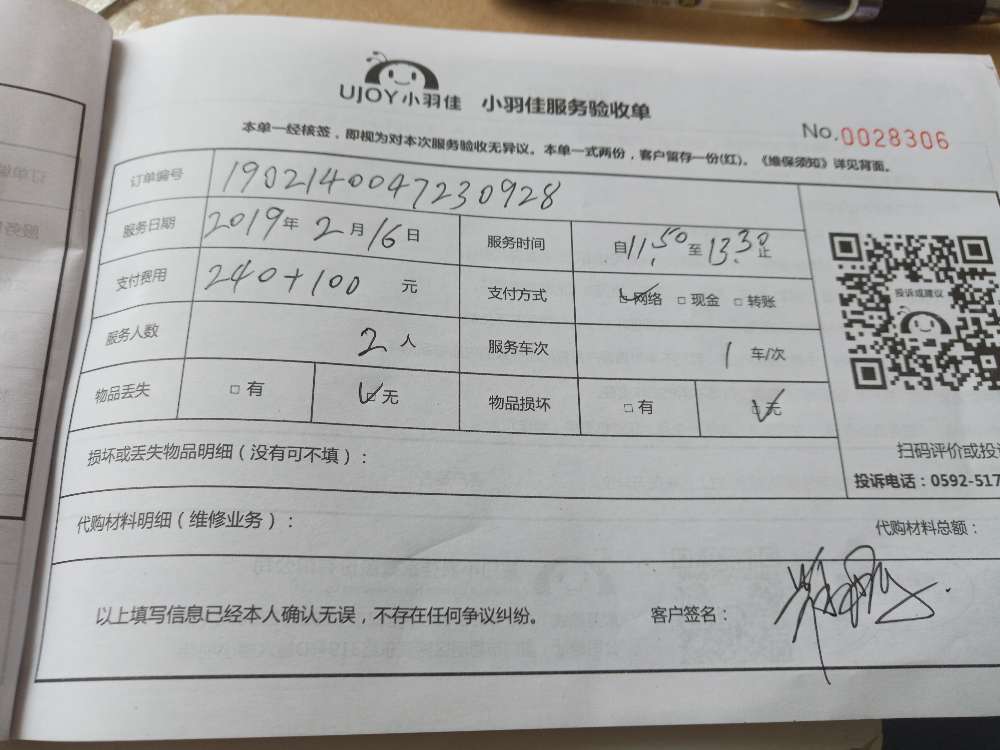 UJOY小羽佳 小羽佳服务验收单
No.0028306
本单一经核签，即视为对本次服务验收无异议。本单一式两份，客户留存一份(红)。《维保须知》详见背面。
订单编号 1902140047230928
服务日期 2019年2月16日 服务时间 自11.50至13.30止
支付费用 240+100 元 支付方式 网络 现金 转账
投诉或建议
服务人数 2人 服务车次 1 车/次
物品丢失 有 无 物品损坏 有 无
扫码评价或投
损坏或丢失物品明细（没有可不填）：
投诉电话：0592-517
代购材料明细（维修业务）：
代购材料总额：
以上填写信息已经本人确认无误，不存在任何争议纠纷。 客户签名：